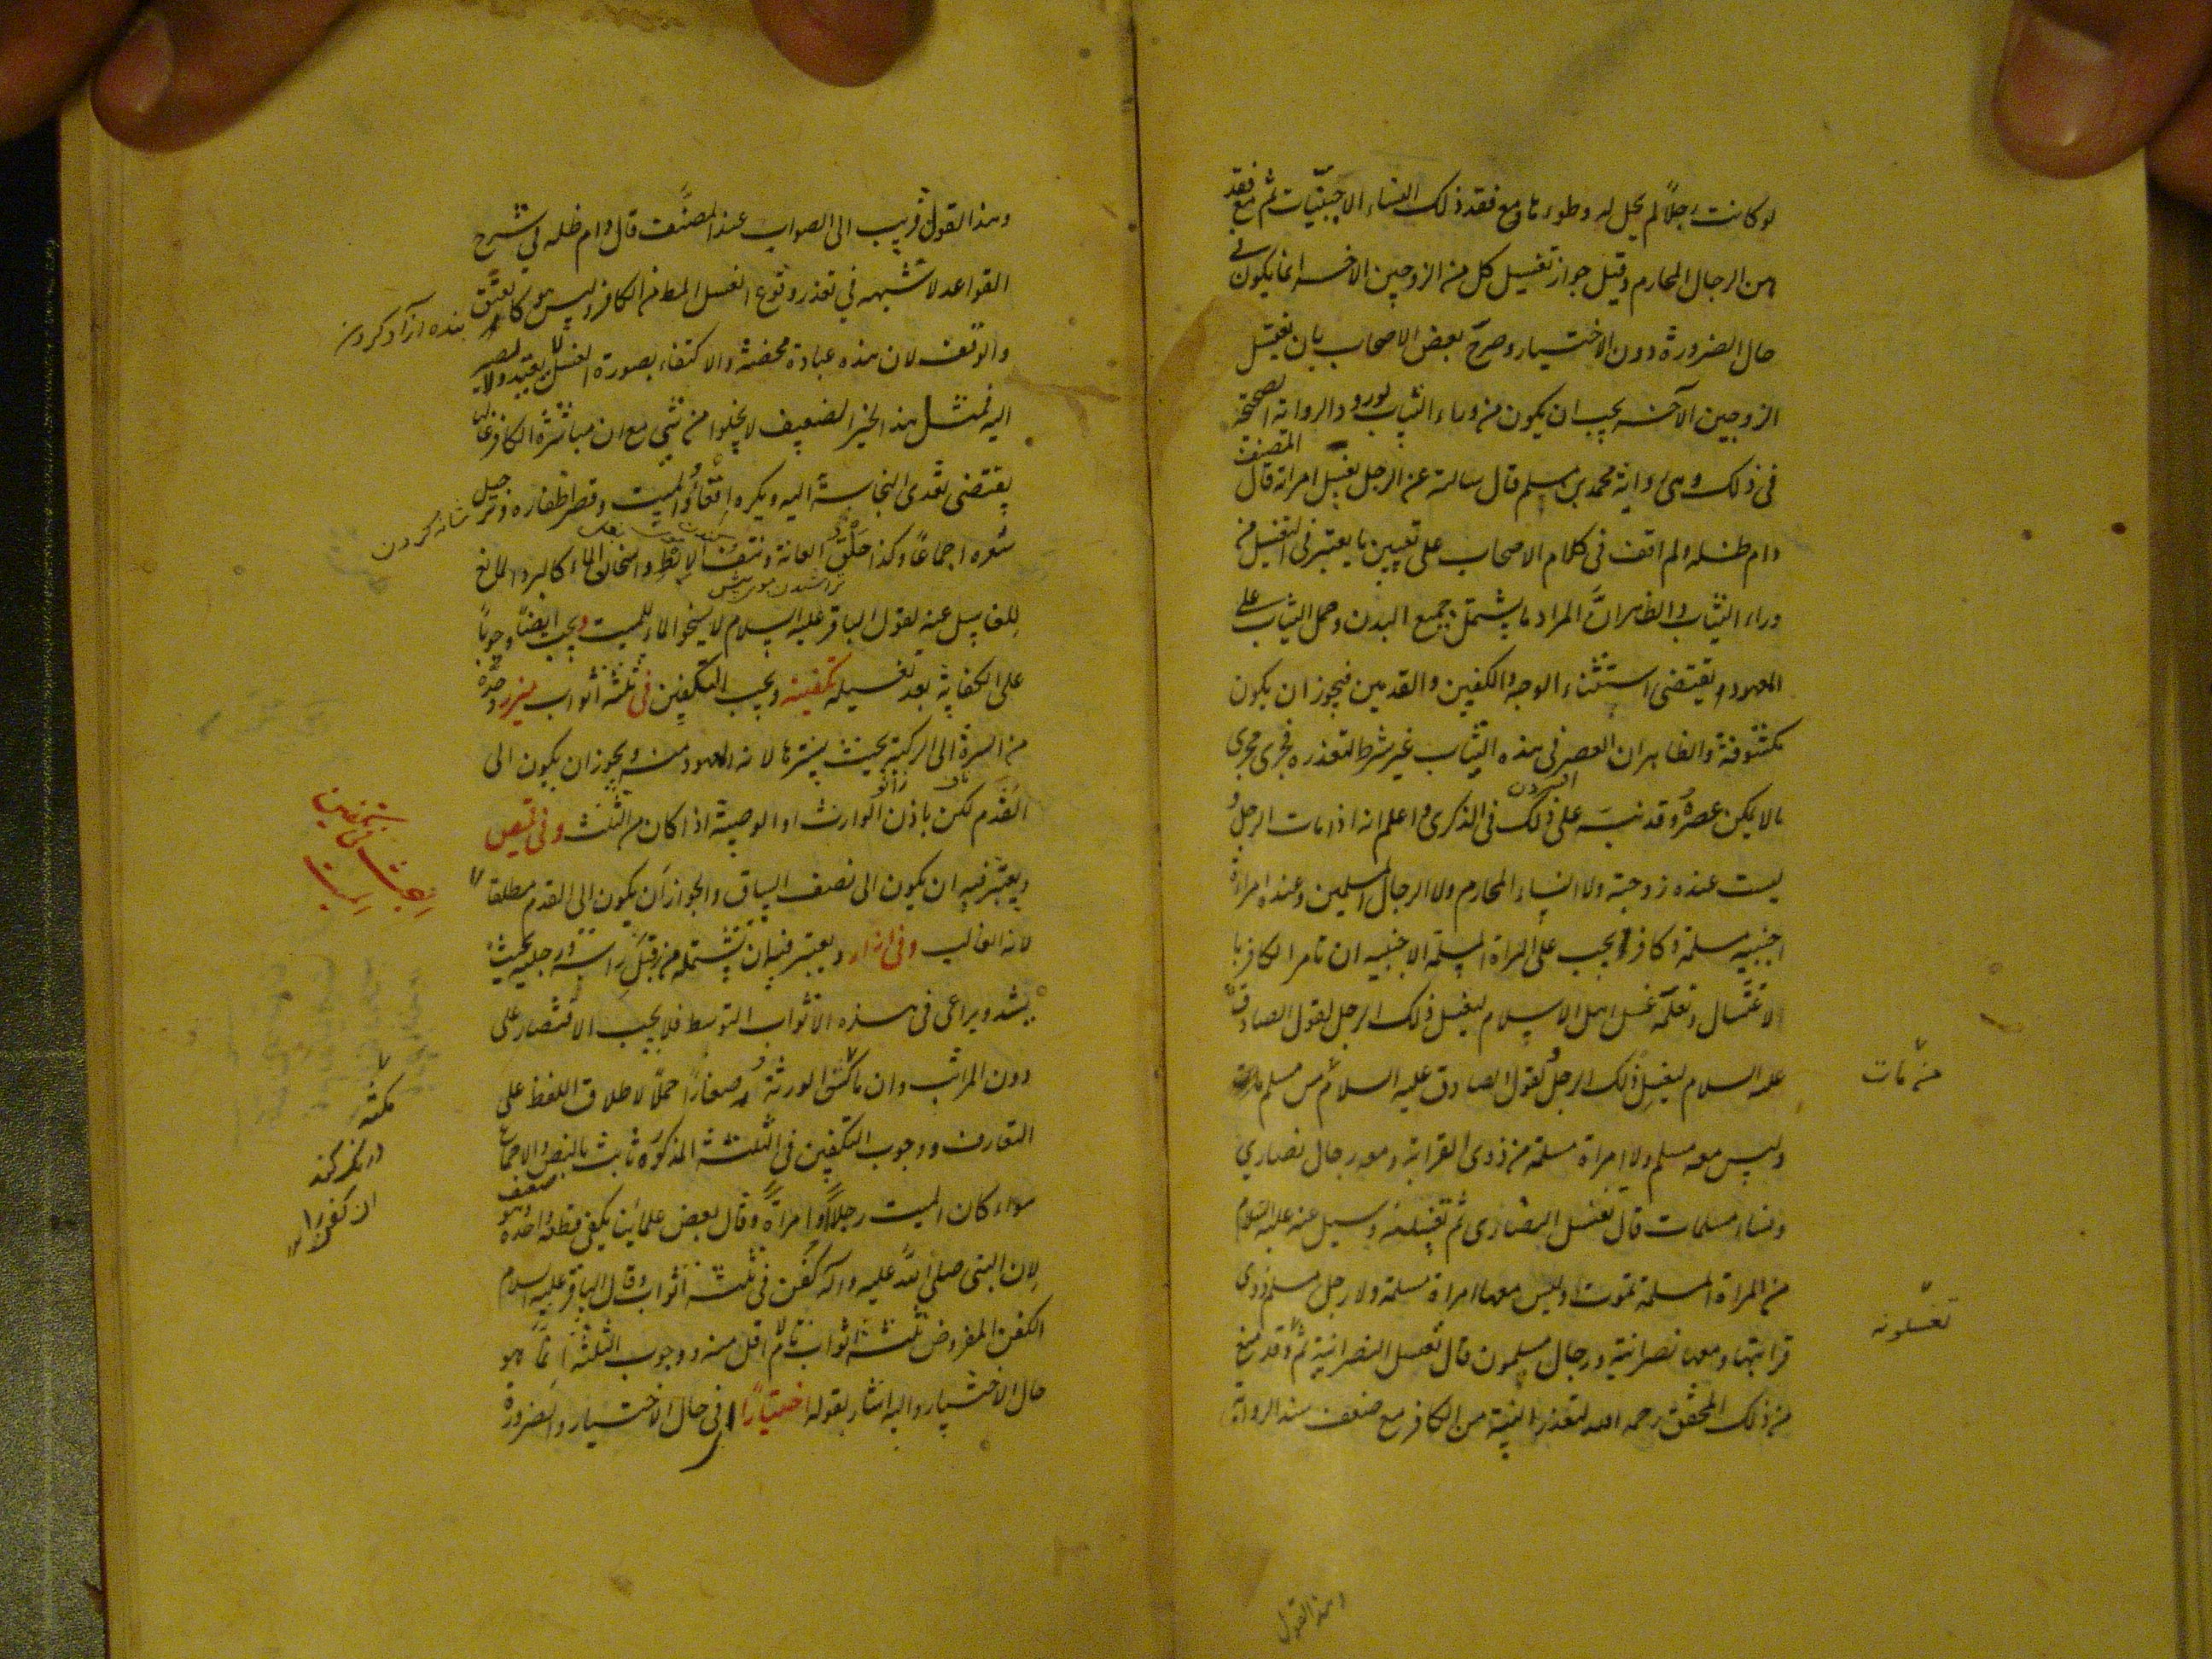 لو كانت رجلاً لم يحل له وطورها ومع فقد ذلك النساء الاجنبيّات ثم مع فقد
هن الرجال المحارم وقيل جواز تغسيل كل من الزوجين الاخر انما يكون فى
حال الضرورة دون الاختيار وصرح بعض الاصحاب بان تغسل
الزوجين الآخر يجب ان يكون من وراء الثياب لورود الرواية الصحيحة
فى ذلك وهى رواية محمد بن مسلم قال سالته عن الرجل يغسل امراته قال المصنف
دام ظله ولم اقف فى كلام الاصحاب على تعيين ما يعتبر فى التغسيل من
وراء الثياب والظاهر انّ المراد ما يشتمل جميع البدن وحمل الثياب على
المعهود يقتضى استثناء الوجه والكفين والقدمين فيجوز ان يكون
مكشوفة والظاهر ان العصر فى هذه الثياب غير شرط لتعذره فجرى مجرى
ما لا يمكن عصره وقد نبّه على ذلك فى الذكرى واعلم انه اذا مات الرجل و
ليست عنده زوجته ولا النساء المحارم ولا الرجال المسلمين وعنده امراة
اجنبيه مسلمة وكافر يجب على المراة المسلمة الاجنبيه ان تامر الكافر با
لاغتسال وتعلمه غسل اهل الاسلام ليغسل ذلك الرجل لقول الصادق
عليه السلام ليغسل ذلك الرجل لقول الصادق عليه السلام من مسلم
وليس معه مسلم ولا امراة مسلمة من ذوى القرابة ومعه رجال نصارى
ونساء مسلمات قال تغسل النصارى ثم تغسلنه وسيل عنه عليه السلام
من المراة المسلمة تموت وليس معها امراة مسلمة ولا رجل مسلم ذوى
قرابتها ومعها نصرانية ورجال مسلمون قال تغسل النصرانية ثم وقد منع
من ذلك المحقق رحمه الله لتعذر النية من الكافر مع ضعف سند الرواة
من مات
تغسلونه
وهذا القول
وهذا القول قريب الى الصواب عند المصنّف قال دام ظله فى شرح
القواعد لا شبهه في تعذر وقوع الغسل المط من الكافر وليس هو كالعتق
بنده آزاد كردن
والوقف لان هذه عبادة محضة والاكتفاء بصورة الغسل لا يفيد ولا يصير
اليه لمثل هذا الخبر الضعيف لا يخلوا من شى مع ان مباشرة الكافر غالبا
يقتضى تعدى النجاسة اليه ويكره اقعاء الميت وقص اظفاره وترجيل
شانه كردن
شعره اجماعاً وكذا حلق العانة ونتف الابط واسخان الماء كالبرد المانع
للغاسل عنه لقول الباقر عليه السلام لا يسخن الماء للميت ويجب ايضاً وجوباً
على الكفاية بعد تغسيله تكفينه ويجب التكفين فى ثلثة اثواب ميزر وحدّه
من السرة الى الركبة بحيث يسترها لانه المعهود منه ويجوز ان يكون الى
ناف زانو
القدم لكن باذن الوارث او الوصية اذا كان من الثلث وفى قميص
ويعتبر فيه ان يكون الى نصف الساق والجواز ان يكون الى القدم مطلقا
لانه الغالب وفى ازار ويعتبر فيه ان تشتمله من قبل راسه ورجليه بحيث
يشد ويراعى فى هذه الاثواب التوسط فلا يجب الاقتصار على
دون المراتب وان ماكس الورثة او صغارًا حملاً لاطلاق اللفظ على
التعارف ووجوب التكفين فى الثلثة المذكورة ثابت بالنص والاجماع
سواء كان الميت رجلاً او امراةً وقال بعض علمائنا يكفى قطعة واحدة وهو ضعف
لان النبى صلى الله عليه واله كُفّن فى ثلثة اثواب وقال الباقر عليه السلام
الكفن المفروض ثلثة اثواب تامّ لا اقل منه ووجوب الثلثة انما هو
حال الاختيار واليه اشار بقوله اختيارًا اى فى حال الاختيار والضرورة